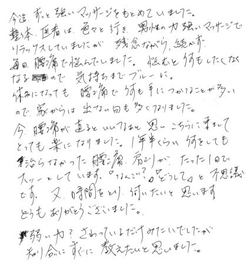 今迄、ずっと強いマッサージをもとめていました。
整体、医者は色々と行き、男性の力強いマッサージで
リラックスしていましたが、残念ながら、絶えず
毎日腰痛で悩んでいました。悩むと何もしたくなく
なるので気持ちまでブルーに。
休みになっても腰痛で何も手につかることが多い
ので家からは出ない日も多くなりました。
今腰痛が直るといいなあと思いこちらに来まして
とても楽になりました。1年半くらい何をしても
治らなかった腰痛、肩こりが、たった1日で
スッーとしています。"なんで?""どうして"と不思議
です。又、時間をとり、伺いたいと思います
どうもありがとうございました。
弱い力?さわっているだけみたいでしたが
知り合にすぐに教えたいと思いました。